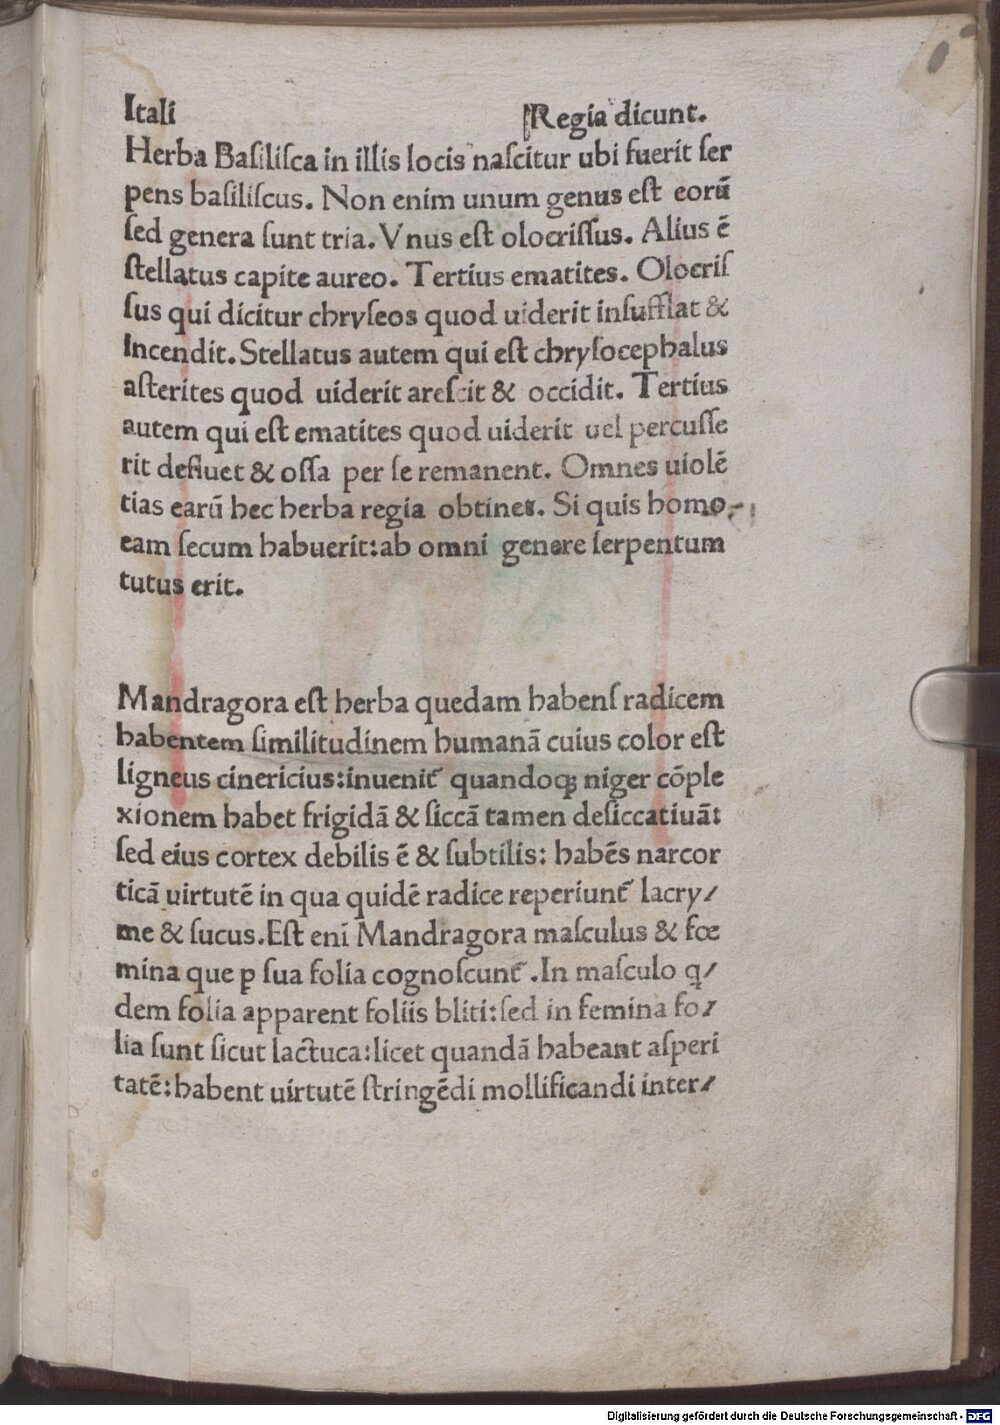 Itali Regia dicunt.
Herba Baſiliſca in illis locis naſcitur ubi fuerit ſer
pens baſiliſcus. Non enim unum genus eſt eorū
ſed genera ſunt tria. Vnus eſt olocriſſus. Alius ē
ſtellatus capite aureo. Tertius ematites. Olocriſ
ſus qui dicitur chryſeos quod uiderit inſufflat &
Incendit. Stellatus autem qui eſt chryſocephalus
aſterites quod uiderit areſcit & occidit. Tertius
autem qui eſt ematites quod uiderit uel percuſſe
rit defluet & oſſa per ſe remanent. Omnes uiolē
tias earū hec herba regia obtinet. Si quis homo
eam ſecum habuerit: ab omni genere ſerpentum
tutus erit.
Mandragora eſt herba quedam habenſ radicem
habentem ſimilitudinem humanā cuius color eſt
ligneus cinericius: inuenit᷑ quandoqꝫ niger cōple
xionem habet frigidā & ſiccā tamen deſiccatiuā:
ſed eius cortex debilis ē & ſubtilis: habēs narcor
ticā uirtutē in qua quidē radice reperiunt᷑ lacry/
me & ſucus. Eſt enī Mandragora maſculus & fœ
mina que ꝑ ſua folia cognoſcunt᷑. In maſculo q/
dem folia apparent foliis bliti: ſed in femina fo/
lia ſunt ſicut lactuca: licet quandā habeant aſperi
tatē: habent uirtutē ſtringēdi mollificandi inter/
Digitalisierung gefördert durch die Deutsche Forschungsgemeinschaft - DFG